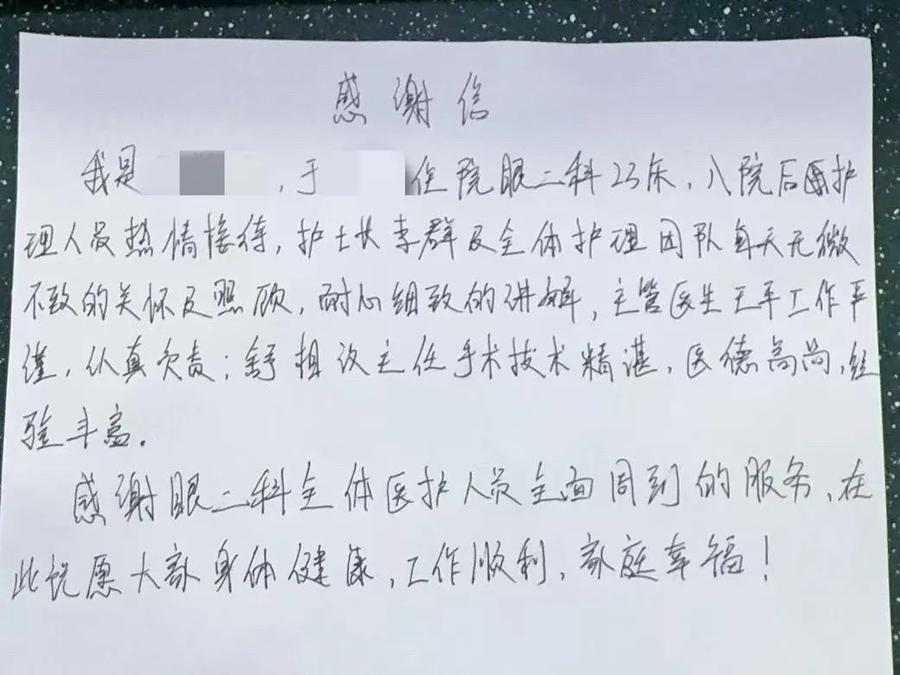 感谢信
我是 ，于 住院眼二科23床，入院后医护
理人员热情接待，护士长李群及全体护理团队每天无微
不致的关怀及照顾，耐心细致的讲解，主管医生王平工作严
谨，认真负责；舒相汶主任手术技术精湛，医德高尚，经
验丰富。
感谢眼二科全体医护人员全面周到的服务，在
此祝愿大家身体健康，工作顺利，家庭幸福！